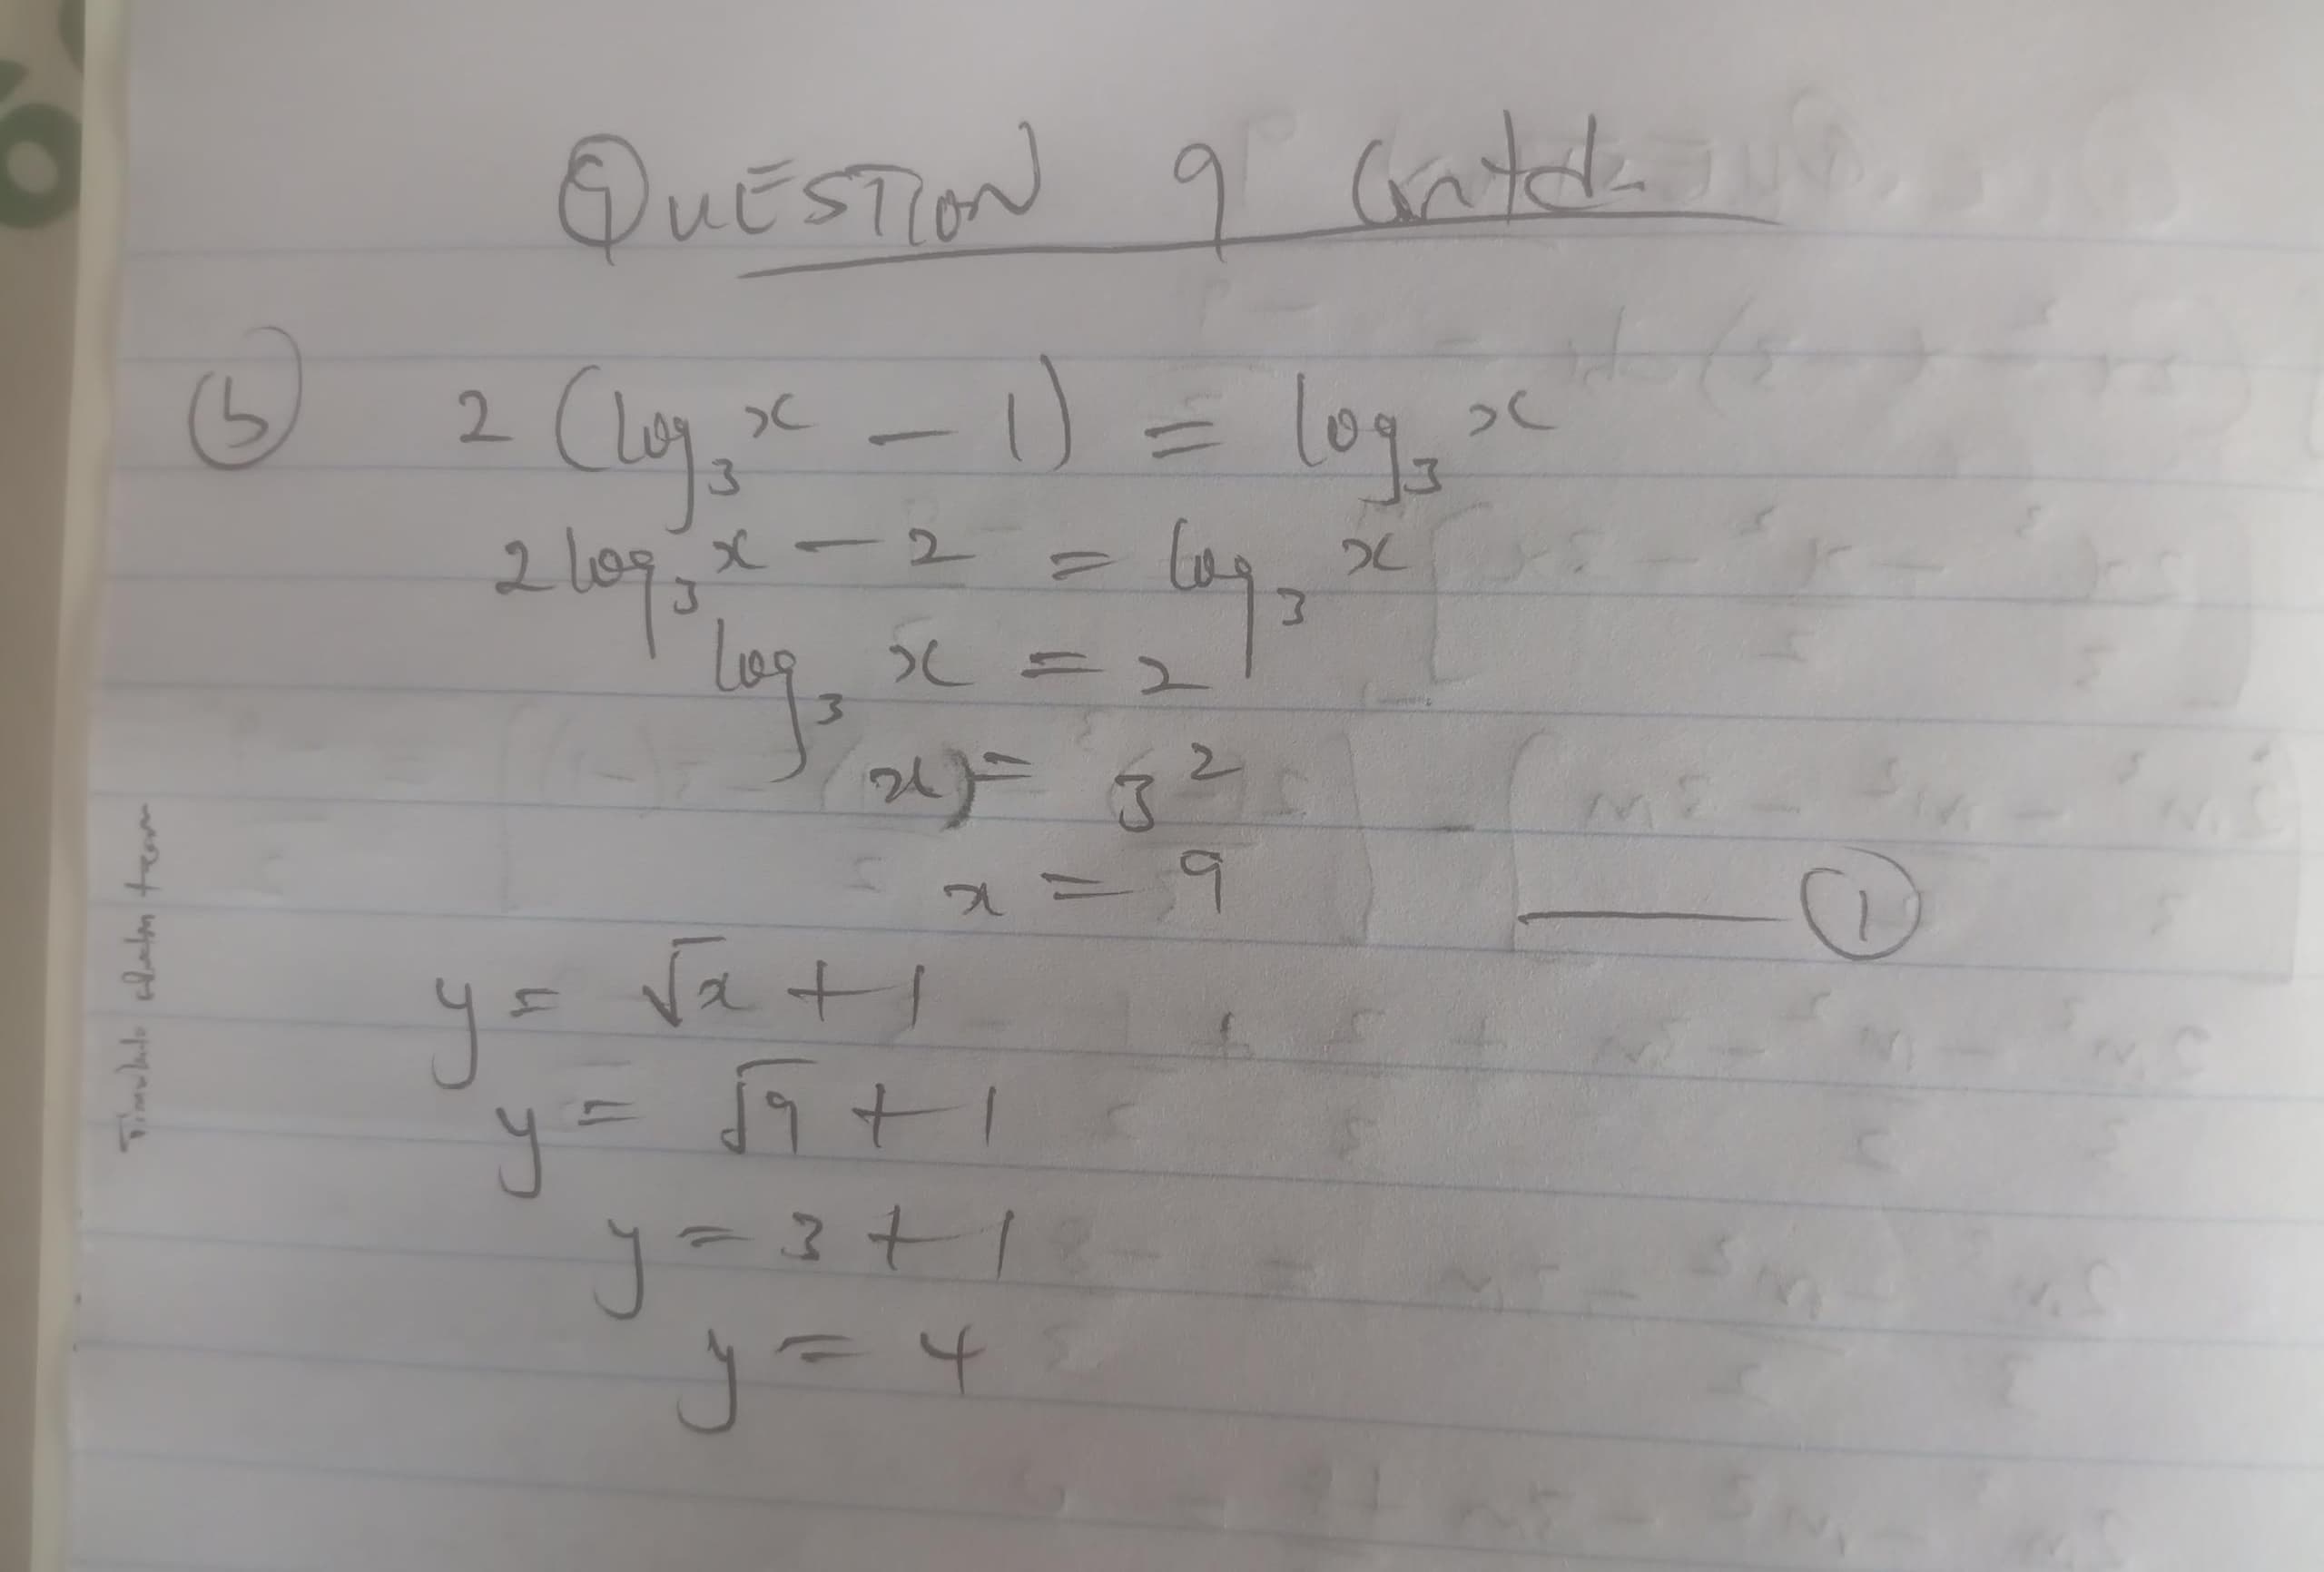 QUESTION 9 Contd-
(b) 2 (log₃ x - 1) = log₃ x
2 log₃ x - 2 = log₃ x
log₃ x = 2
x = 3²
x = 9 ——— (1)
y = √x + 1
y = √9 + 1
y = 3 + 1
y = 4